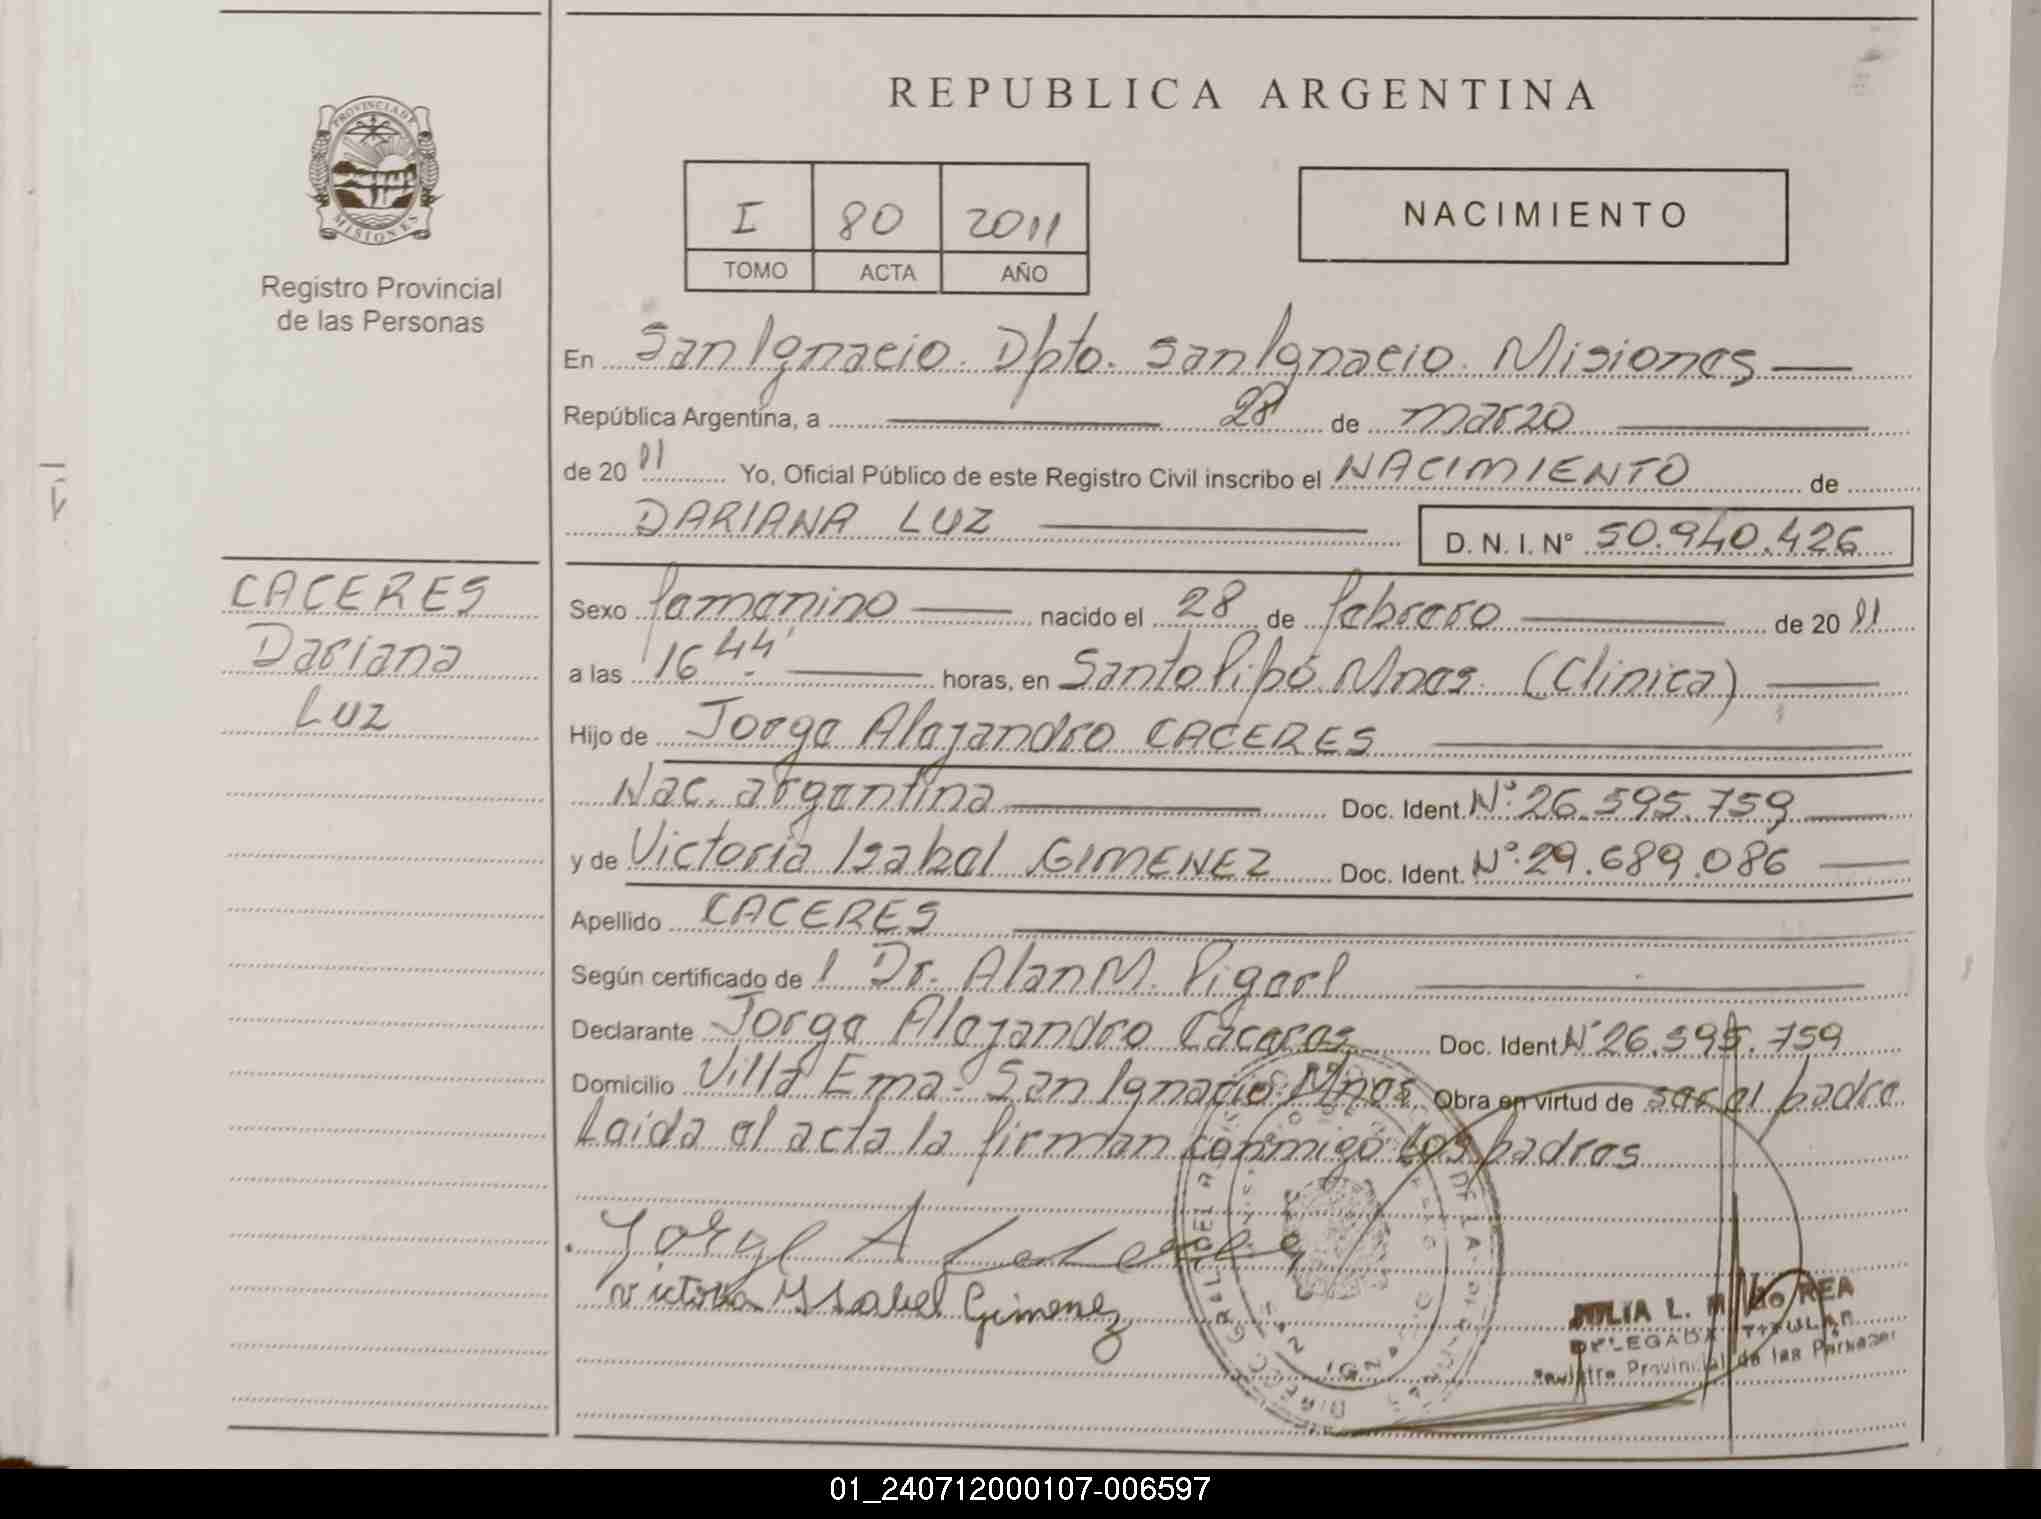 REPUBLICA ARGENTINA
PROVINCIA DE
MISIONES
Registro Provincial
de las Personas
I 80 2011
TOMO ACTA AÑO
NACIMIENTO
En San Ignacio. Dpto. San Ignacio. Misiones
República Argentina, a 28 de marzo
de 2011 Yo, Oficial Público de este Registro Civil inscribo el NACIMIENTO de
DARIANA LUZ D. N. I. N° 50.940.426
CACERES
Dariana
Luz
Sexo femenino nacido el 28 de febrero de 2011
a las 16 44' horas, en Santo Pipó Mnes. (Clinica)
Hijo de Jorge Alejandro CACERES
Nac. argentina Doc. Ident. N° 26.595.759
y de Victoria Isabel GIMENEZ Doc. Ident. N° 29.689.086
Apellido CACERES
Según certificado de l Dr. Alan M.
Declarante Jorge Alejandro Caceres Doc. Ident N° 26.595.759
Domicilio Villa Ema - San Ignacio Mnes Obra en virtud de ser el padre
Leida el acta la firman conmigo los padres
Jorge A
Victoria Ysabel Gimenez
JULIA L.
DELEGADA TITULAR
Registro Provincial de las Personas
01_240712000107-006597